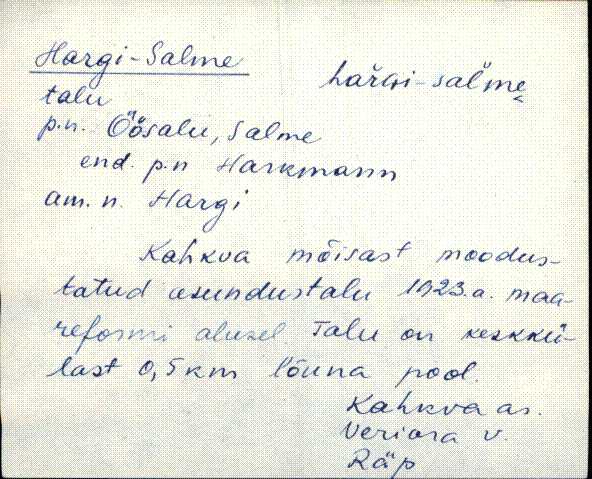 Hargi-Salme
haŕgi-sal'me
talu
p.n. Öösalu, Salme
end. p.n Harkmann
am. n. Hargi
Kahkva mõisast moodus-
tatud asundustalu 1923.a. maa-
reformi alusel Talu on keskkü-
last 0,5 km lõuna pool.
Kahkva as.
Veriora v.
Räp